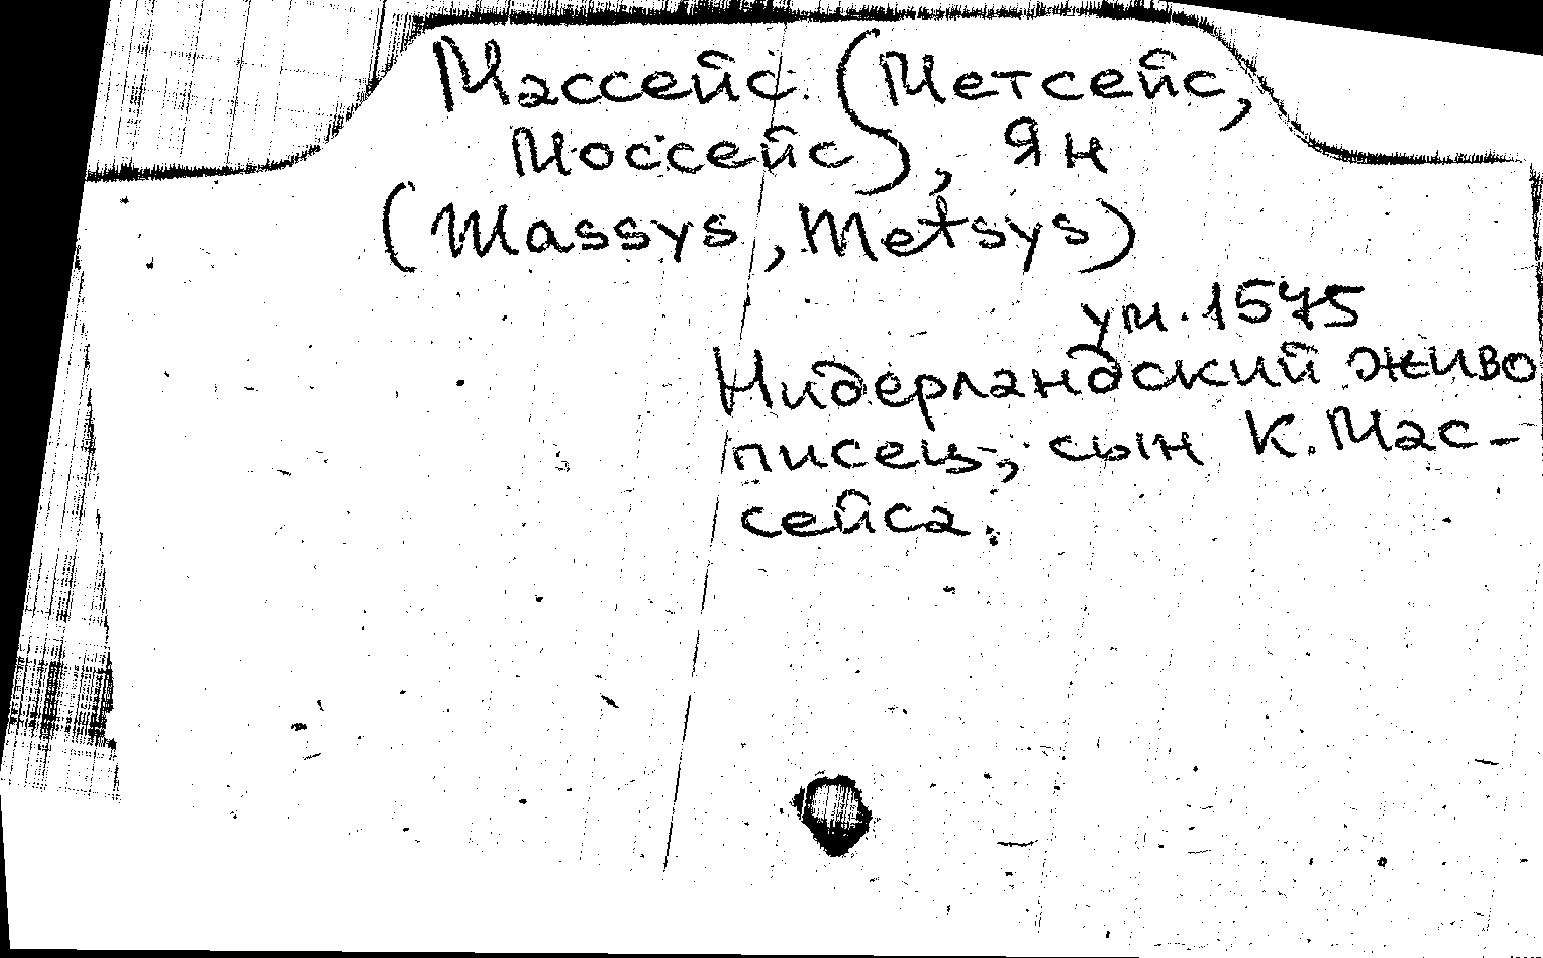 Массейс (Метсейс,
Моссейс), Ян
(Massys, Metsys)
ум. 1575
Нидерландский живо
писец, сын К. Мас-
сейса.